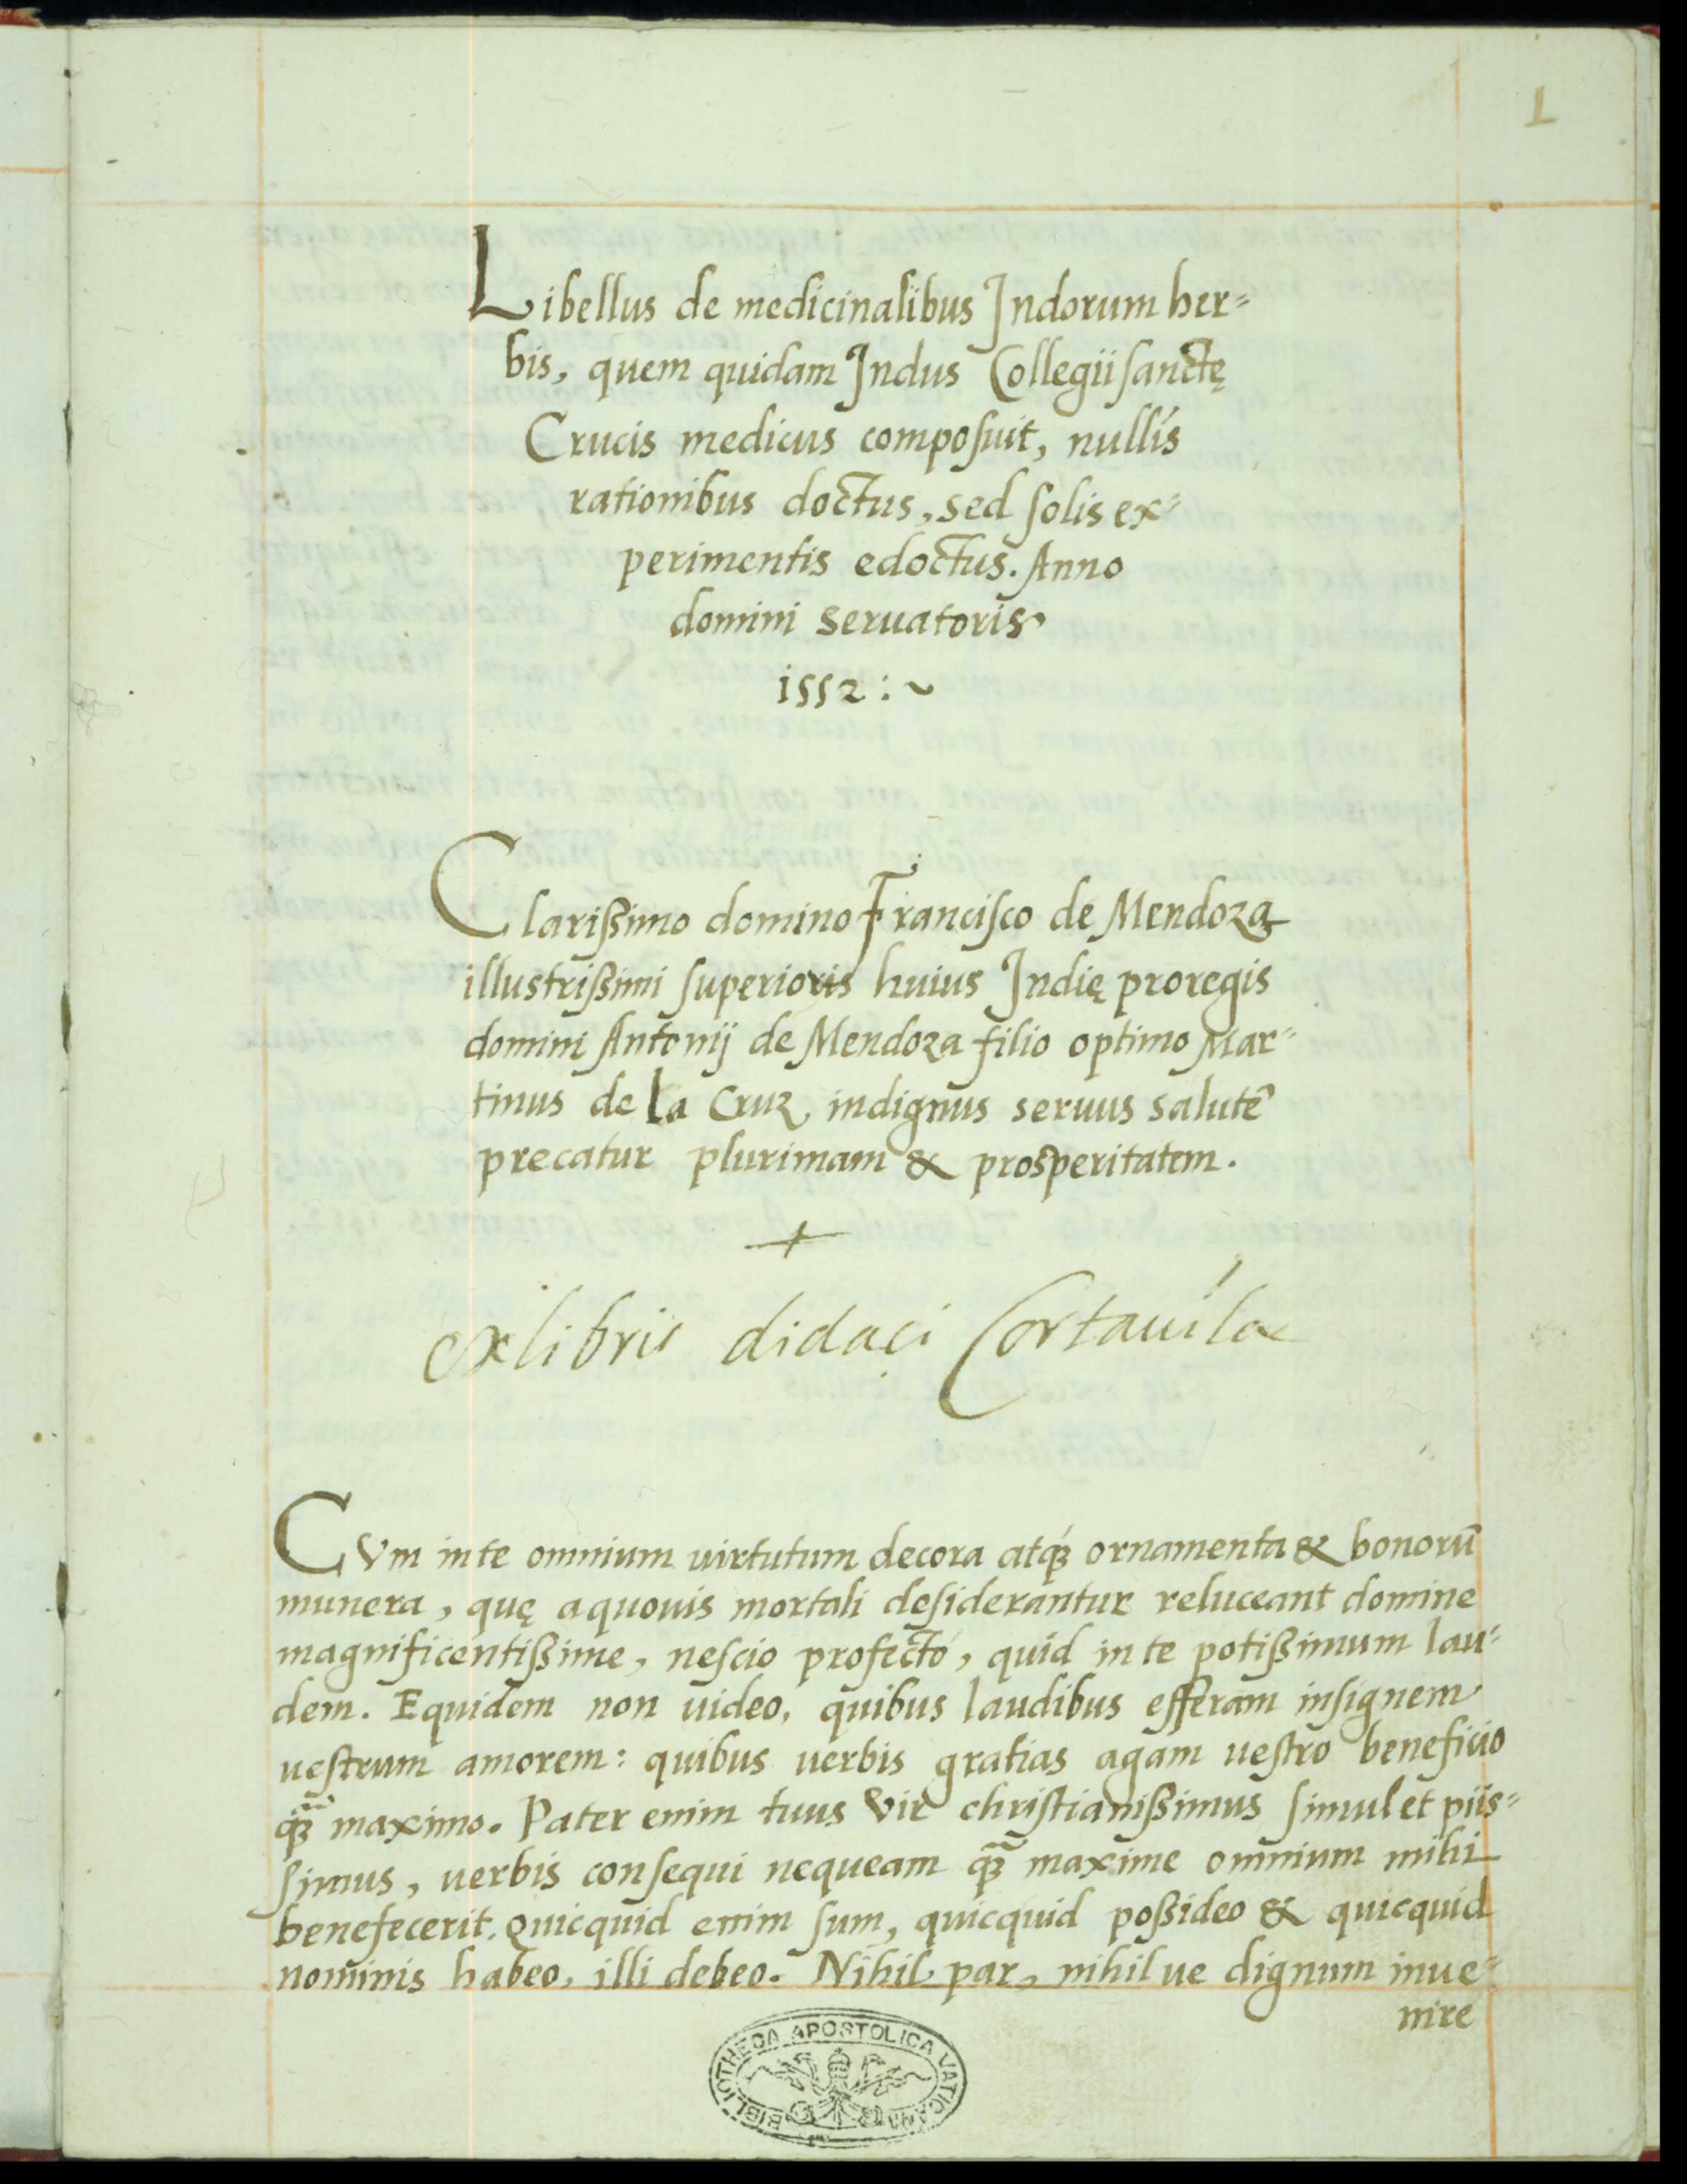 1
Libellus de medicinalibus Indorum her=
bis, quem quidam Indus Collegii sanctę
Crucis medicus composuit, nullís
rationibus doctus, sed solis ex=
perimentis edoctus. Anno
domini seruatoris
1552 : ~
Clarißimo domino Francisco de Mendoza
illustrißimi superioris huius Indię proregis
domini Antonij de Mendoza filio optimo Mar=
tinus de la Cruz indignus seruus salutē
precatur plurimam & prosperitatem.
+
ex libris didaci Cortauila
CVm in te omnium uirtutum decora atqꝫ́ ornamenta & bonorū
munera, quę a quouis mortali desiderantur reluceant domine
magnificentißime, nescio profectó, quid in te potißimum lau=
dem. Equidem non uideo, quibus laudibus efferam insignem
uestrum amorem: quibus uerbis gratias agam uestro beneficio
qꝫ̄ maximo. Pater enim tuus vir christianißimus simul et piis=
simus, uerbis consequi nequeam qꝫ̄ maxime omnium mihi
benefecerit. Quicquid enim sum, quicquid poßideo & quicquid
nominis habeo, illi debeo. Nihil par, nihilue dignum inue=
nire
BIBLIOTHECA APOSTOLICA VATICANA